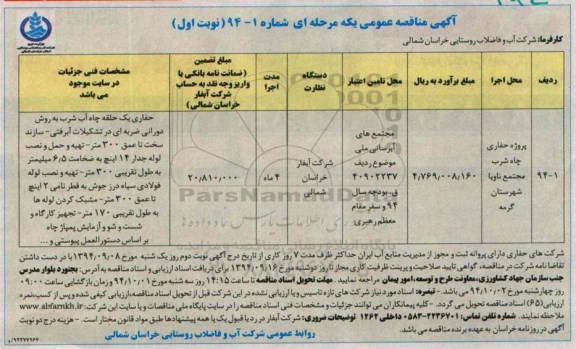 آگهی مناقصه عمومی یکه مرحله ای شماره ۱- ۹۴ (نوبت اول)
کارفرما: شرکت آب و فاضلاب روستایی خراسان شمالی
ردیف
محل اجرا
مبلغ برآورد به ریال
محل تامین اعتبار
دستگاه نظارت
مدت اجرا
مبلغ تضمین (ضمانت نامه بانکی یا واریز وجه نقد به حساب شرکت آبفار خراسان شمالی)
مشخصات فنی جزئیات در سایت موجود می باشد
۹۴-۱
پروژه حفاری چاه شرب مجتمع ناویا شهرستان گرمه
۴/۷۶۹/۰۰۸/۱۶۰
مجتمع های آبرسانی ملی موضوع ردیف ۴۰۹۰۲۲۳۷ ق. بودجه سال ۹۴ و سفر مقام معظم رهبری
شرکت آبفار خراسان شمالی
۴ ماه
۲۰/۸۱۰/۰۰۰
حفاری یک حلقه چاه آب شرب به روش
دورانی ضربه ای در تشکیلات آبرفتی- سازند
سخت تا عمق ۳۰۰ متر- تهیه و حمل و نصب
لوله جدار ۱۴ اینچ به ضخامت ۶/۵ میلیمتر
به طول تقریبی ۳۰۰ متر- تهیه و نصب لوله
فولادی سیاه درز جوش به قطر نامی ۲ اینچ
تا عمق ۳۰۰ متر- مشبک کردن لوله ها
به طول تقریبی ۱۷۰ متر- تجهیز کارگاه و
شست و شو و آزمایش پمپاژ چاه
بر اساس دستورالعمل پیوستی و ...
شرکت های حفاری دارای پروانه ثبت و مجوز از مدیریت منابع آب ایران حداکثر ظرف مدت ۷ روز کاری از تاریخ درج آگهی نوبت دوم روز یک شنبه مورخ ۱۳۹۴/۰۹/۰۸ با در دست داشتن
تقاضا نامه شرکت در مناقصه، گواهی تایید صلاحیت و پرینت ظرفیت کاری مجاز تا روز دوشنبه مورخ ۱۳۹۴/۰۹/۱۶ برای دریافت اسناد ارزیابی و اسناد مناقصه به آدرس: بجنورد بلوار مدرس
جنب سازمان جهاد کشاورزی، معاونت طرح و توسعه، امور پیمان مراجعه نمایند. مهلت تحویل اسناد مناقصه تا ساعت ۱۴:۱۵ روز سه شنبه مورخ ۹۴/۱۰/۰۱ و زمان بازگشایی ساعت ۰۹:۰۰
روز چهارشنبه مورخ ۹۴/۱۰/۰۲ می باشد.
ارزیابی (۶۵) اسناد مناقصه تحویل می گردد. - کلیه پیمانکاران می توانند جزئیات و مشخصات فنی اسناد مناقصه را در سایت پایگاه ملی مناقصات و یا سایت این شرکت: www.abfarnkh.ir
ملاحظه نمایند. شماره تلفن تماس: ۲۲۳۶۷۰۱-۰۵۸۳ داخلی ۱۲۶۲ توضیحات ضروری: شرکت آبفار در رد یا قبول یک یا همه پیشنهادها طبق مواد قانون مختار است. - هزینه درج دو نوبت
آگهی در روزنامه خراسان به عهده برنده مناقصه می باشد.
روابط عمومی شرکت آب و فاضلاب روستایی خراسان شمالی
ParsNamadData